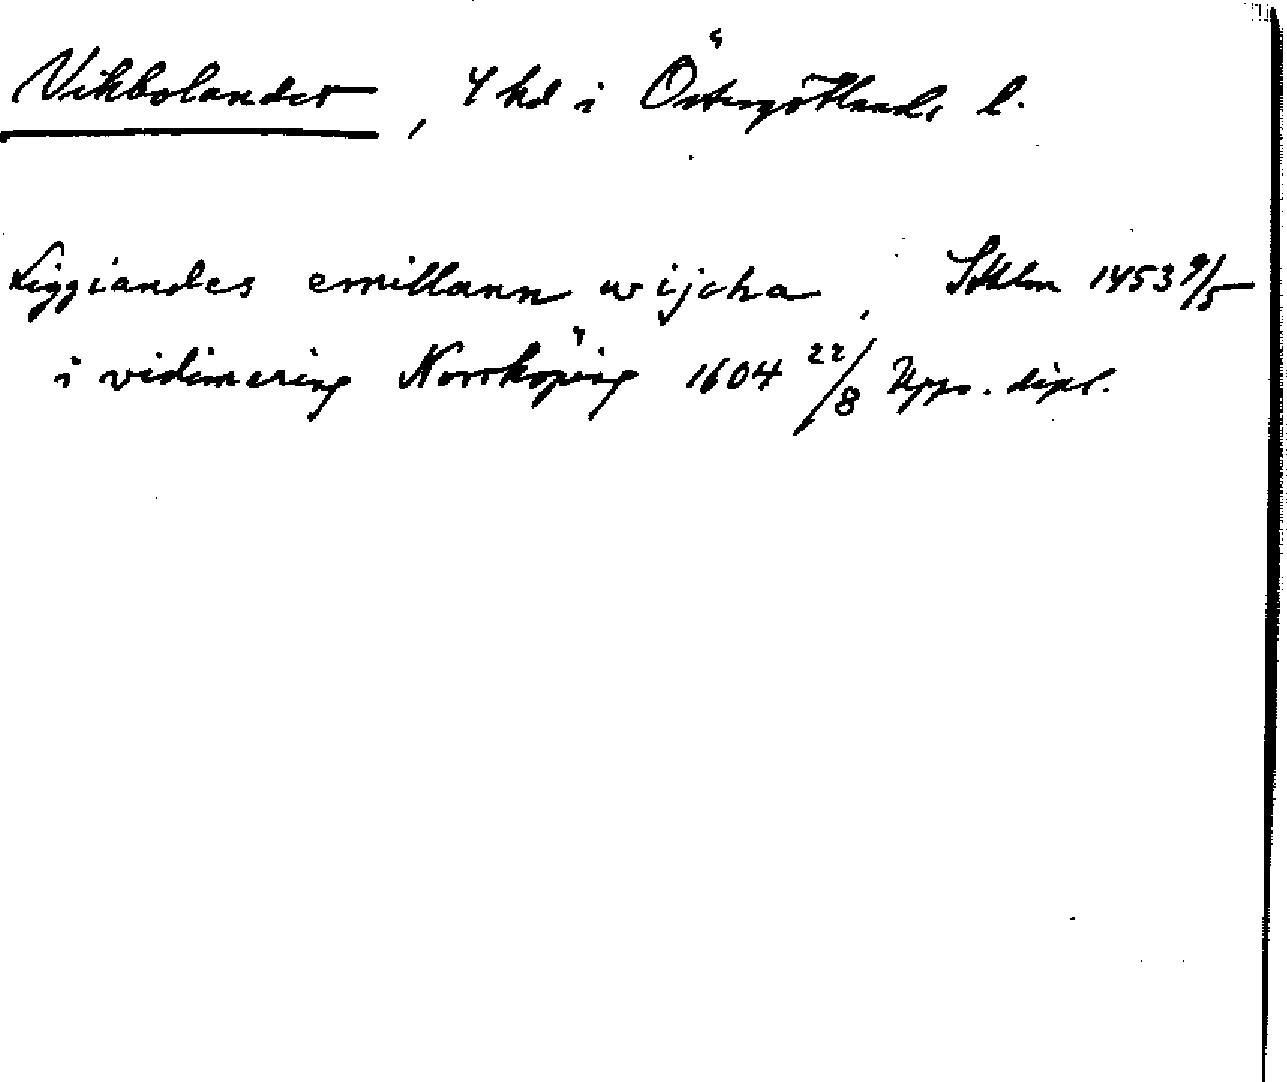 Vikbolandet, 4 hd i Östergötlands l.
Liggiandes emillann wijcha, Sthlm 1453 9/5
i vidimering Norrköping 1604 22/8 Upps. dipl.